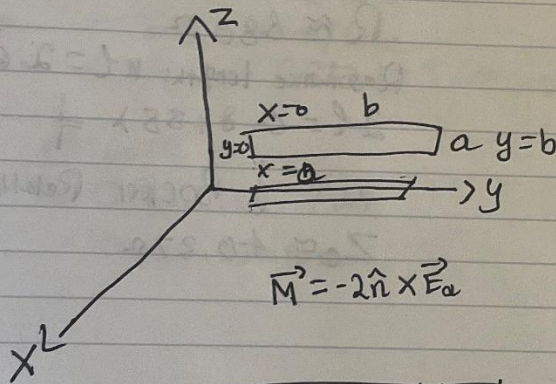 Z
x=0 b
y=0 a y=b
x=a
y
M⃗ = -2n̂ × E⃗a
X